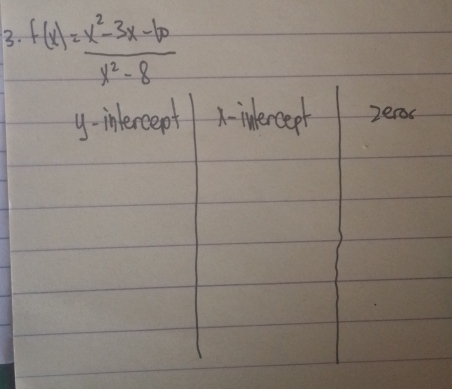 3. f(x) = x² - 3x - 10
x² - 8
y-intercept x-intercept zeros